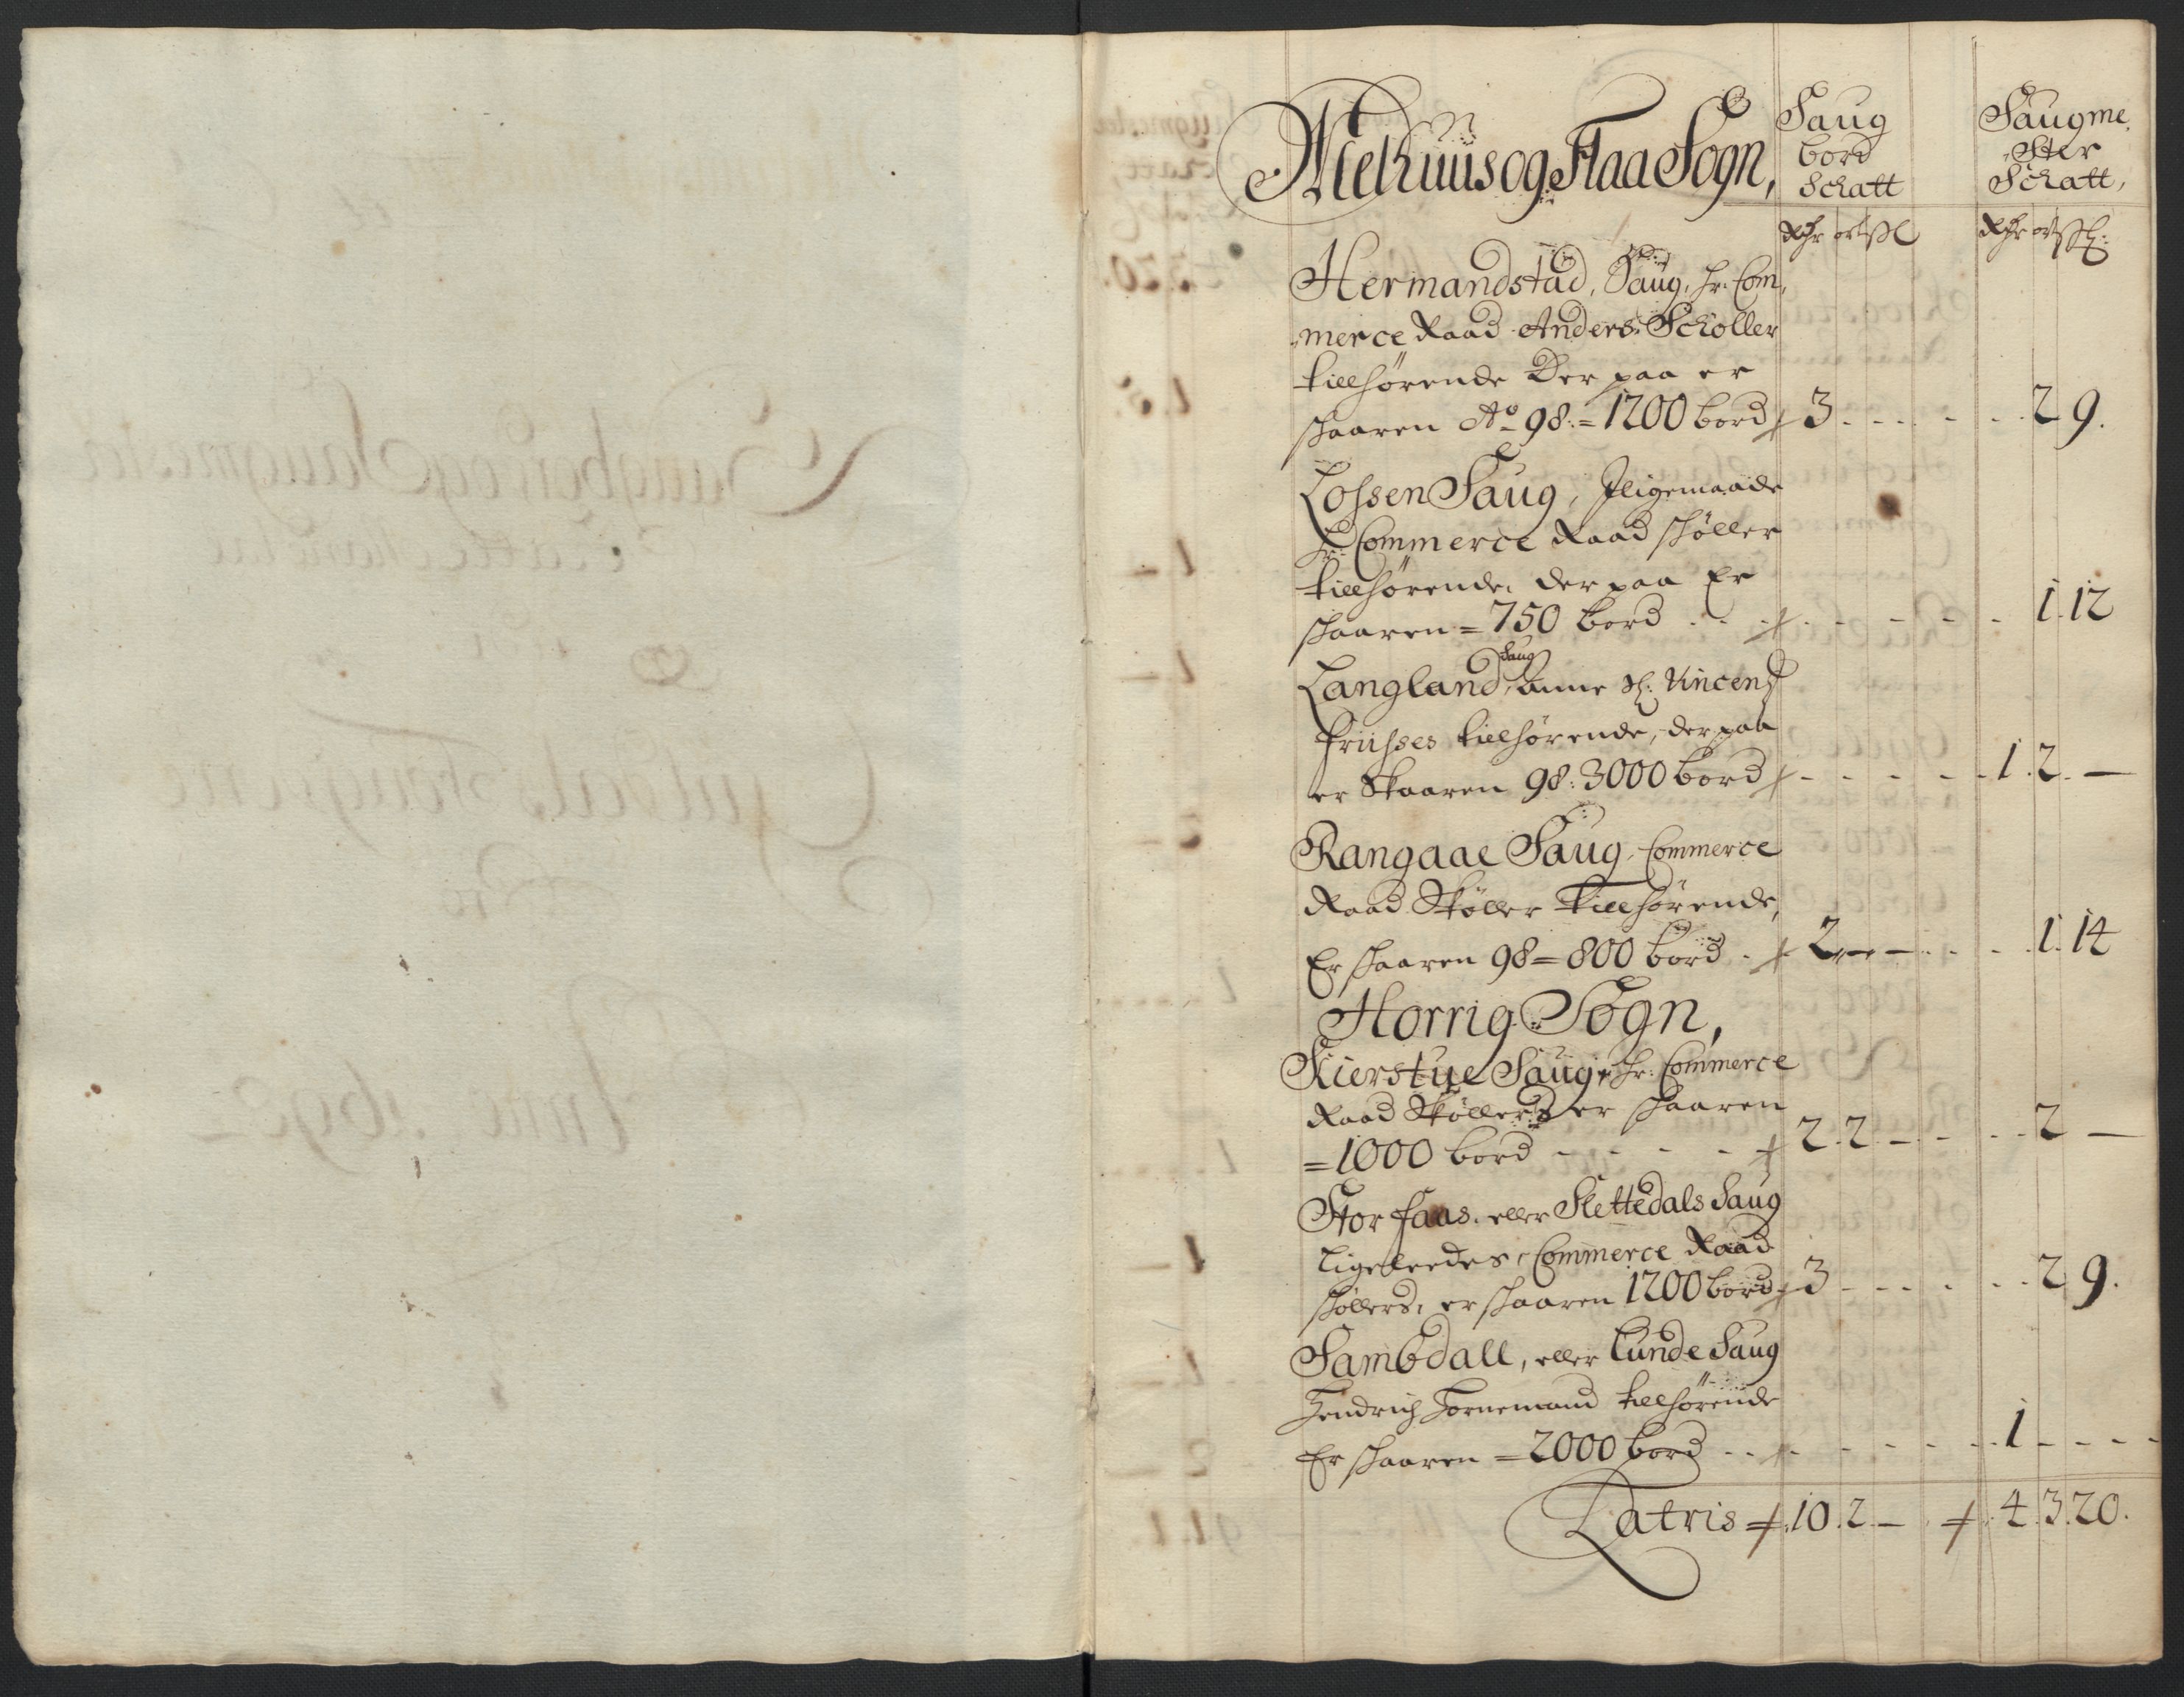 Mielhuus og Flaa Sogn,
Saug bord Schatt
Saugme ster Schatt,
Rdr ort ßl
Rdr ort ßl:
Hermandstad, Saug, hr: Com,
merce Raad Anders Schøller
tillhørende Der paa er
skaaren Ao 98 = 1200 bord 3 - - - 2 9.
Lossen Saug, Iligemaade
hr: Commerce Raad Skøller
tillhørende, der paa Er
skaaren = 750 bord - - - 1. 12
Langland Saug, Anne Sl: Vincens
friises tillhørende, der paa
er Skaaren 98: 3000 bord - - - 1. 2. —
Rangaae Saug, Commerce
Raad Skøller tillhørende,
Er skaaren 98 = 800 bord 2 — — - - 1. 14
Horrig Sogn,
Kierstue Saug, hr: Commerce
Raad Skøllers er skaaren
= 1000 bord - - - 2. 2 — - - 2 —
Stor faas, eller Slettedals Saug
Ligeleedes, Commerce Raad
Skøllers, er skaaren 1200 bord 3 - - - 2 9.
Sambdall, eller Lunde Saug
Hendrich Hornemand tillhørende
Er skaaren = 2000 bord - - - 1 - - -
Latris 10. 2. — 4. 3. 20.